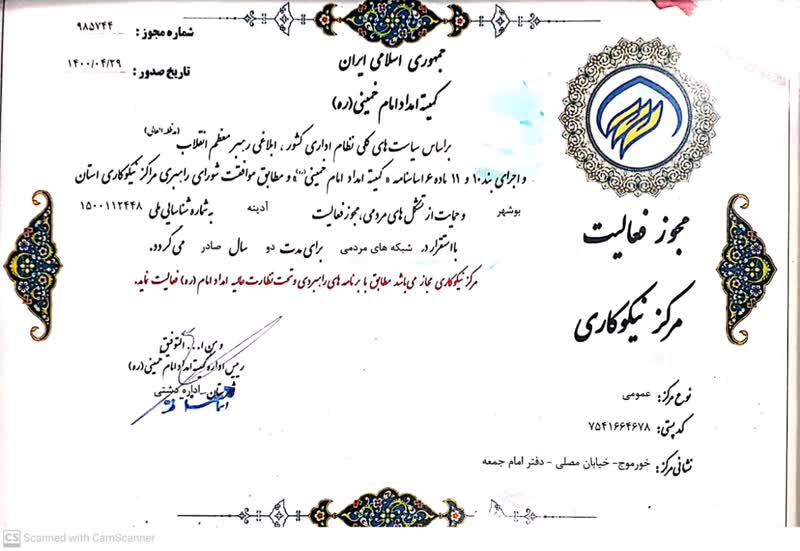 شماره مجوز: ۹۸۵۷۴۴
تاریخ صدور: ۱۴۰۰/۰۴/۲۹
جمهوری اسلامی ایران
کمیته امداد امام خمینی(ره)
براساس سیاست های کلی نظام اداری کشور، ابلاغی رهبر معظم انقلاب (مدظله العالی)
و اجرای بند ۱۰ و ۱۱ ماده ۶ اساسنامه «کمیته امداد امام خمینی(ره)» و مطابق موافقت شورای راهبری مراکز نیکوکاری استان
بوشهر و حمایت از تشکل های مردمی، مجوز فعالیت آدینه به شماره شناسایی ملی ۱۵۰۰۱۱۲۴۴۸
با استقرار در شبکه های مردمی برای مدت دو سال صادر می گردد.
مرکز نیکوکاری مجاز می باشد مطابق با برنامه های راهبردی و تحت نظارت عالیه امداد امام (ره) فعالیت نماید.
مجوز فعالیت
مرکز نیکوکاری
و من ا... التوفیق
رییس اداره کمیته امداد امام خمینی(ره)
شهرستان - اداره دشتی
نوع مرکز: عمومی
کد پستی: ۷۵۴۱۶۶۴۶۷۸
نشانی مرکز: خورموج- خیابان مصلی - دفتر امام جمعه
CS Scanned with CamScanner